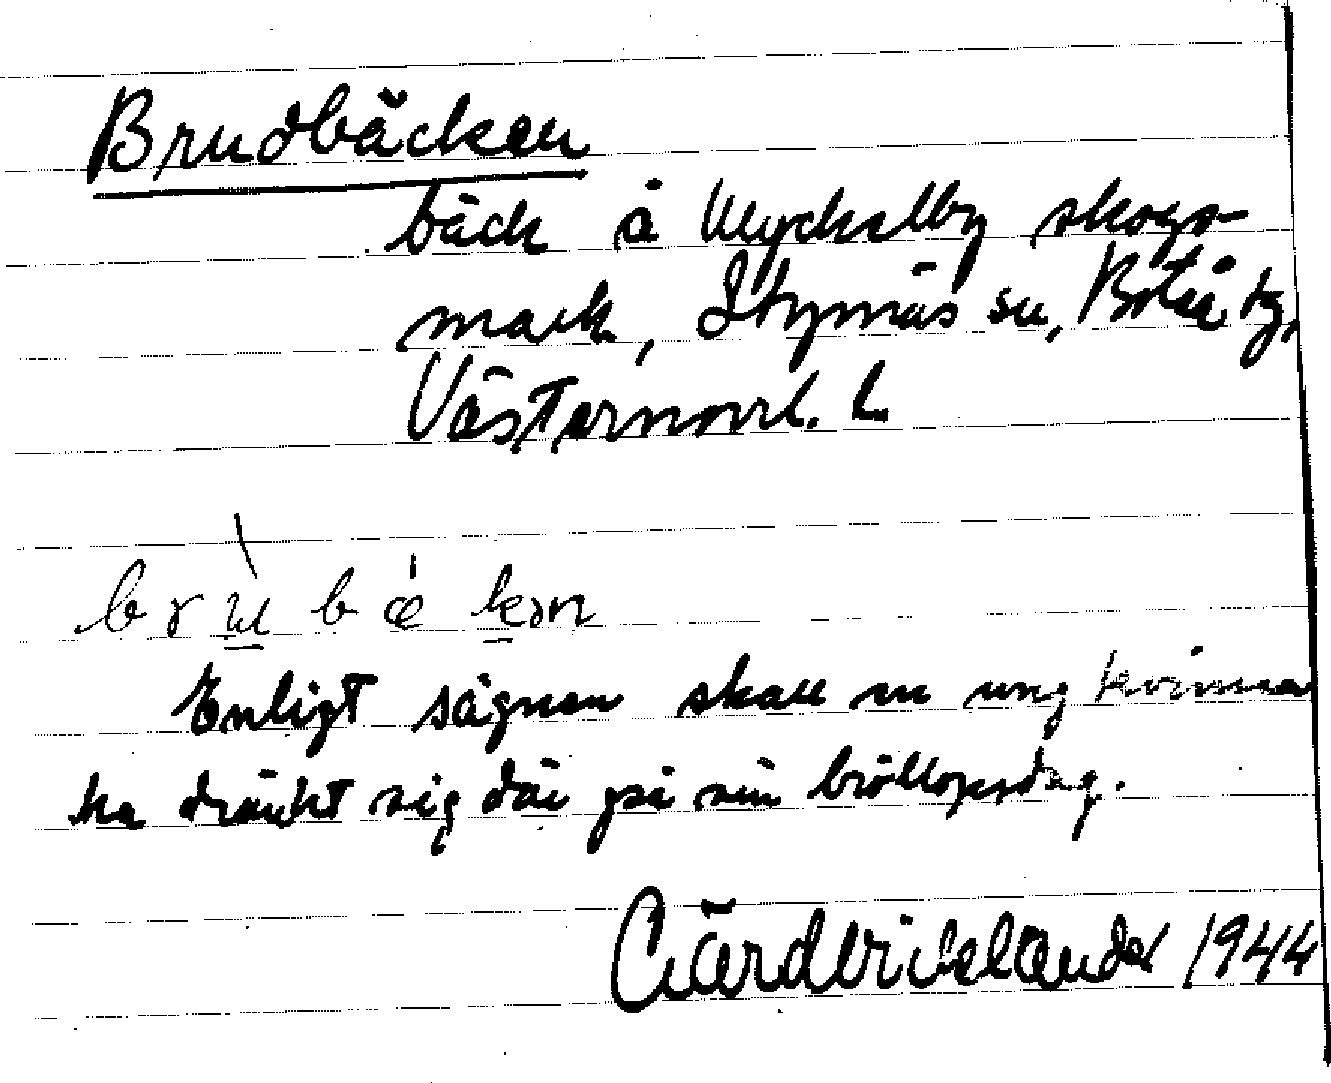 Brudbäcken
bäck å Myckelby skogs-
mark, Styrnäs sn, Boteå tg,
Västernorrl. L
brùbækən
Enligt sägnen skall en ung kvinna
ha dränkt sig där på sin bröllopsdag.
1944